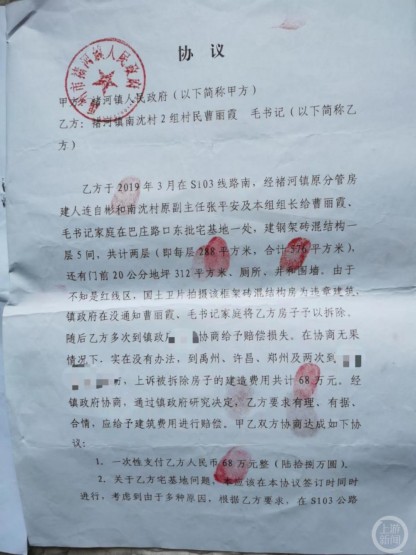 协 议
甲方：褚河镇人民政府（以下简称甲方）
乙方：褚河镇南沈村2组村民曹丽霞 毛书记（以下简称乙
方）
乙方于2019年3月在S103线路南，经褚河镇原分管房
建人连自彬和南沈村原副主任张平安及本组组长给曹丽霞、
毛书记家庭在巴庄路口东批宅基地一处，建钢架砖混结构一
层5间，共计两层（即每层288平方米，合计576平方米），
还有门前20公分地坪312平方米、厕所、井和围墙。由于
不知是红线区，国土卫片拍摄该框架砖混结构房为违章建筑，
镇政府在没通知曹丽霞、毛书记家庭将乙方房子予以拆除。
随后乙方多次到镇政 协商给予赔偿损失。在协商无果
情况下，实在没有办法，到禹州、许昌、郑州及两次到
，上诉被拆除房子的建造费用共计68万元。经
镇政府协商，通过镇政府研究决定，乙方要求有理、有据、
合情，应给予建筑费用进行赔偿。甲乙双方协商达成如下协
议：
1、一次性支付乙方人民币68万元整（陆拾捌万圆）。
2、关于乙方宅基地问题，本应该在本协议签订时同时
进行，考虑到由于多种原因，根据乙方要求，在S103公路
人民政府
上游新闻